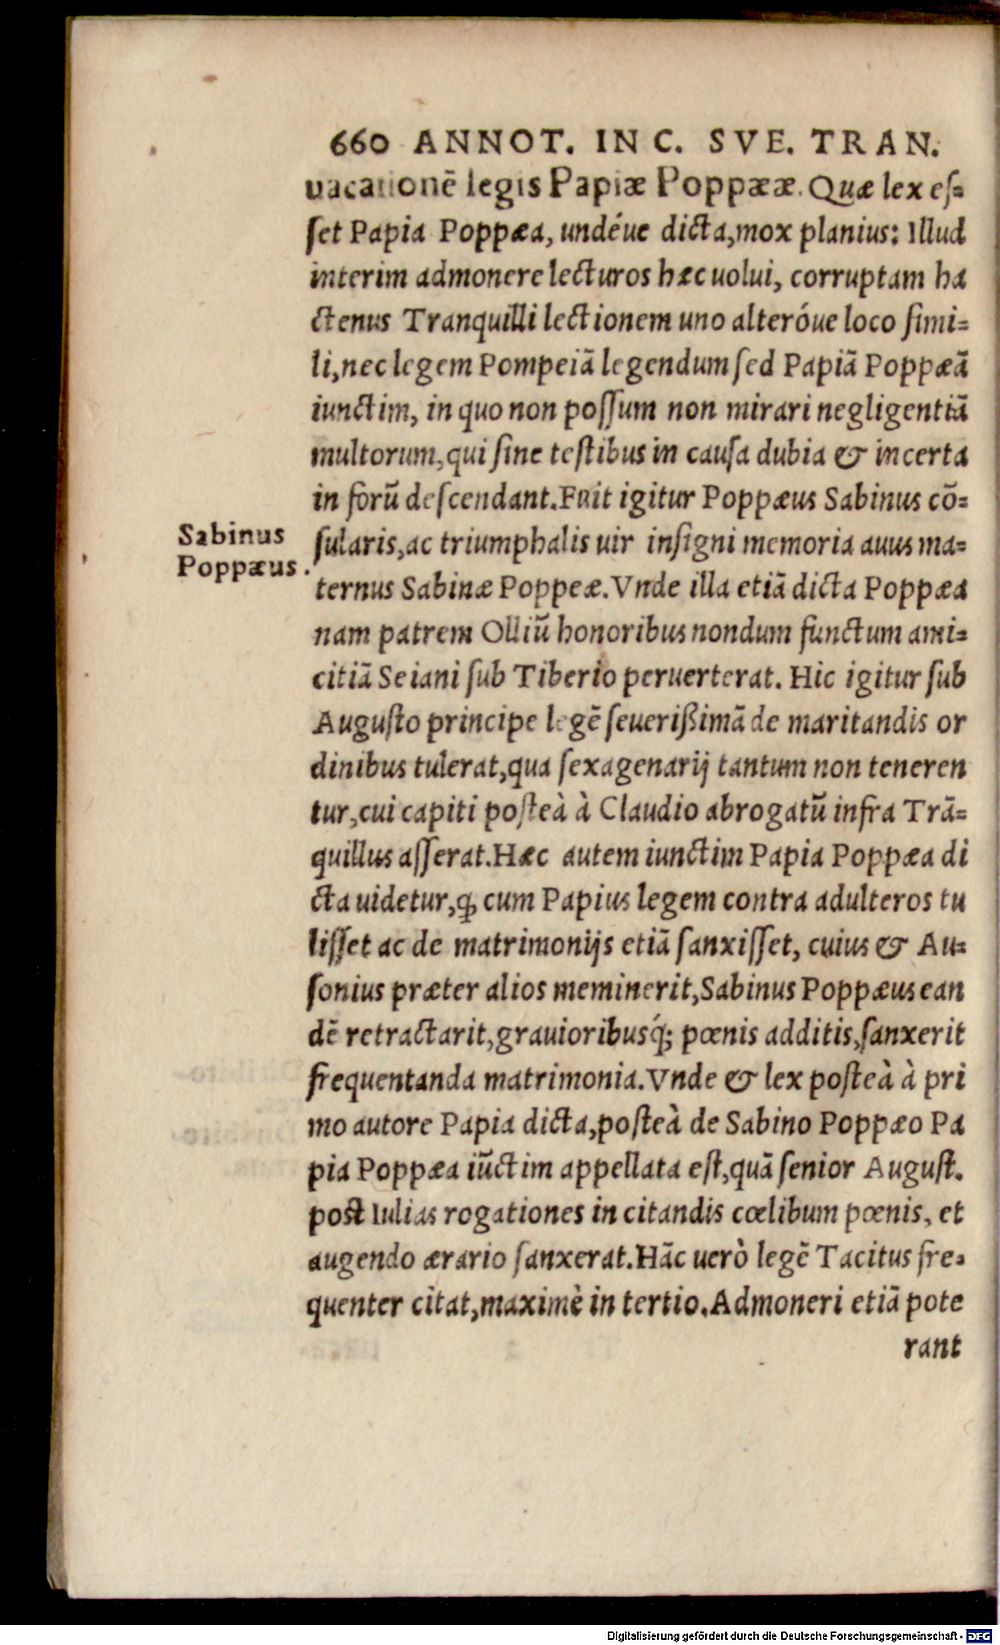 660 ANNOT. IN C. SVE. TRAN.
uacationē legis Papiæ Poppææ. Quæ lex eſ=
ſet Papia Poppæa, undéue dicta,mox planius: Illud
interim admonere lecturos hæc uolui, corruptam ha
ctenus Tranquilli lectionem uno alteróue loco ſimi=
li,nec legem Pompeiā legendum ſed Papiā Poppæā
iunctim, in quo non poſſum non mirari negligentiā
multorum,qui ſine teſtibus in cauſa dubia & incerta
in forū deſcendant.Fuit igitur Poppæus Sabinus cō=
Sabinus
Poppæus.
ſularis,ac triumphalis uir inſigni memoria auus ma=
ternus Sabinæ Poppeæ.Vnde illa etiā dicta Poppæa
nam patrem Olliū honoribus nondum functum ami=
citiā Seiani ſub Tiberio peruerterat. Hic igitur ſub
Auguſto principe legē ſeuerißimā de maritandis or
dinibus tulerat,qua ſexagenarij tantum non teneren
tur,cui capiti poſteà à Claudio abrogatū infra Trā=
quillus aſſerat.Hæc autem iunctim Papia Poppæa di
cta uidetur,ꝙ cum Papius legem contra adulteros tu
liſſet ac de matrimonijs etiā ſanxiſſet, cuius & Au=
ſonius præter alios meminerit,Sabinus Poppæus ean
dē retractarit,grauioribusq́; pœnis additis,ſanxerit
frequentanda matrimonia.Vnde & lex poſteà à pri
mo autore Papia dicta,poſteà de Sabino Poppæo Pa
pia Poppæa iūctim appellata eſt,quā ſenior Auguſt.
post Iulias rogationes in citandis cœlibum pœnis, et
augendo ærario ſanxerat.Hāc uerò legē Tacitus fre=
quenter citat,maximè in tertio.Admoneri etiā pote
rant
Digitalisierung gefördert durch die Deutsche Forschungsgemeinschaft - DFG